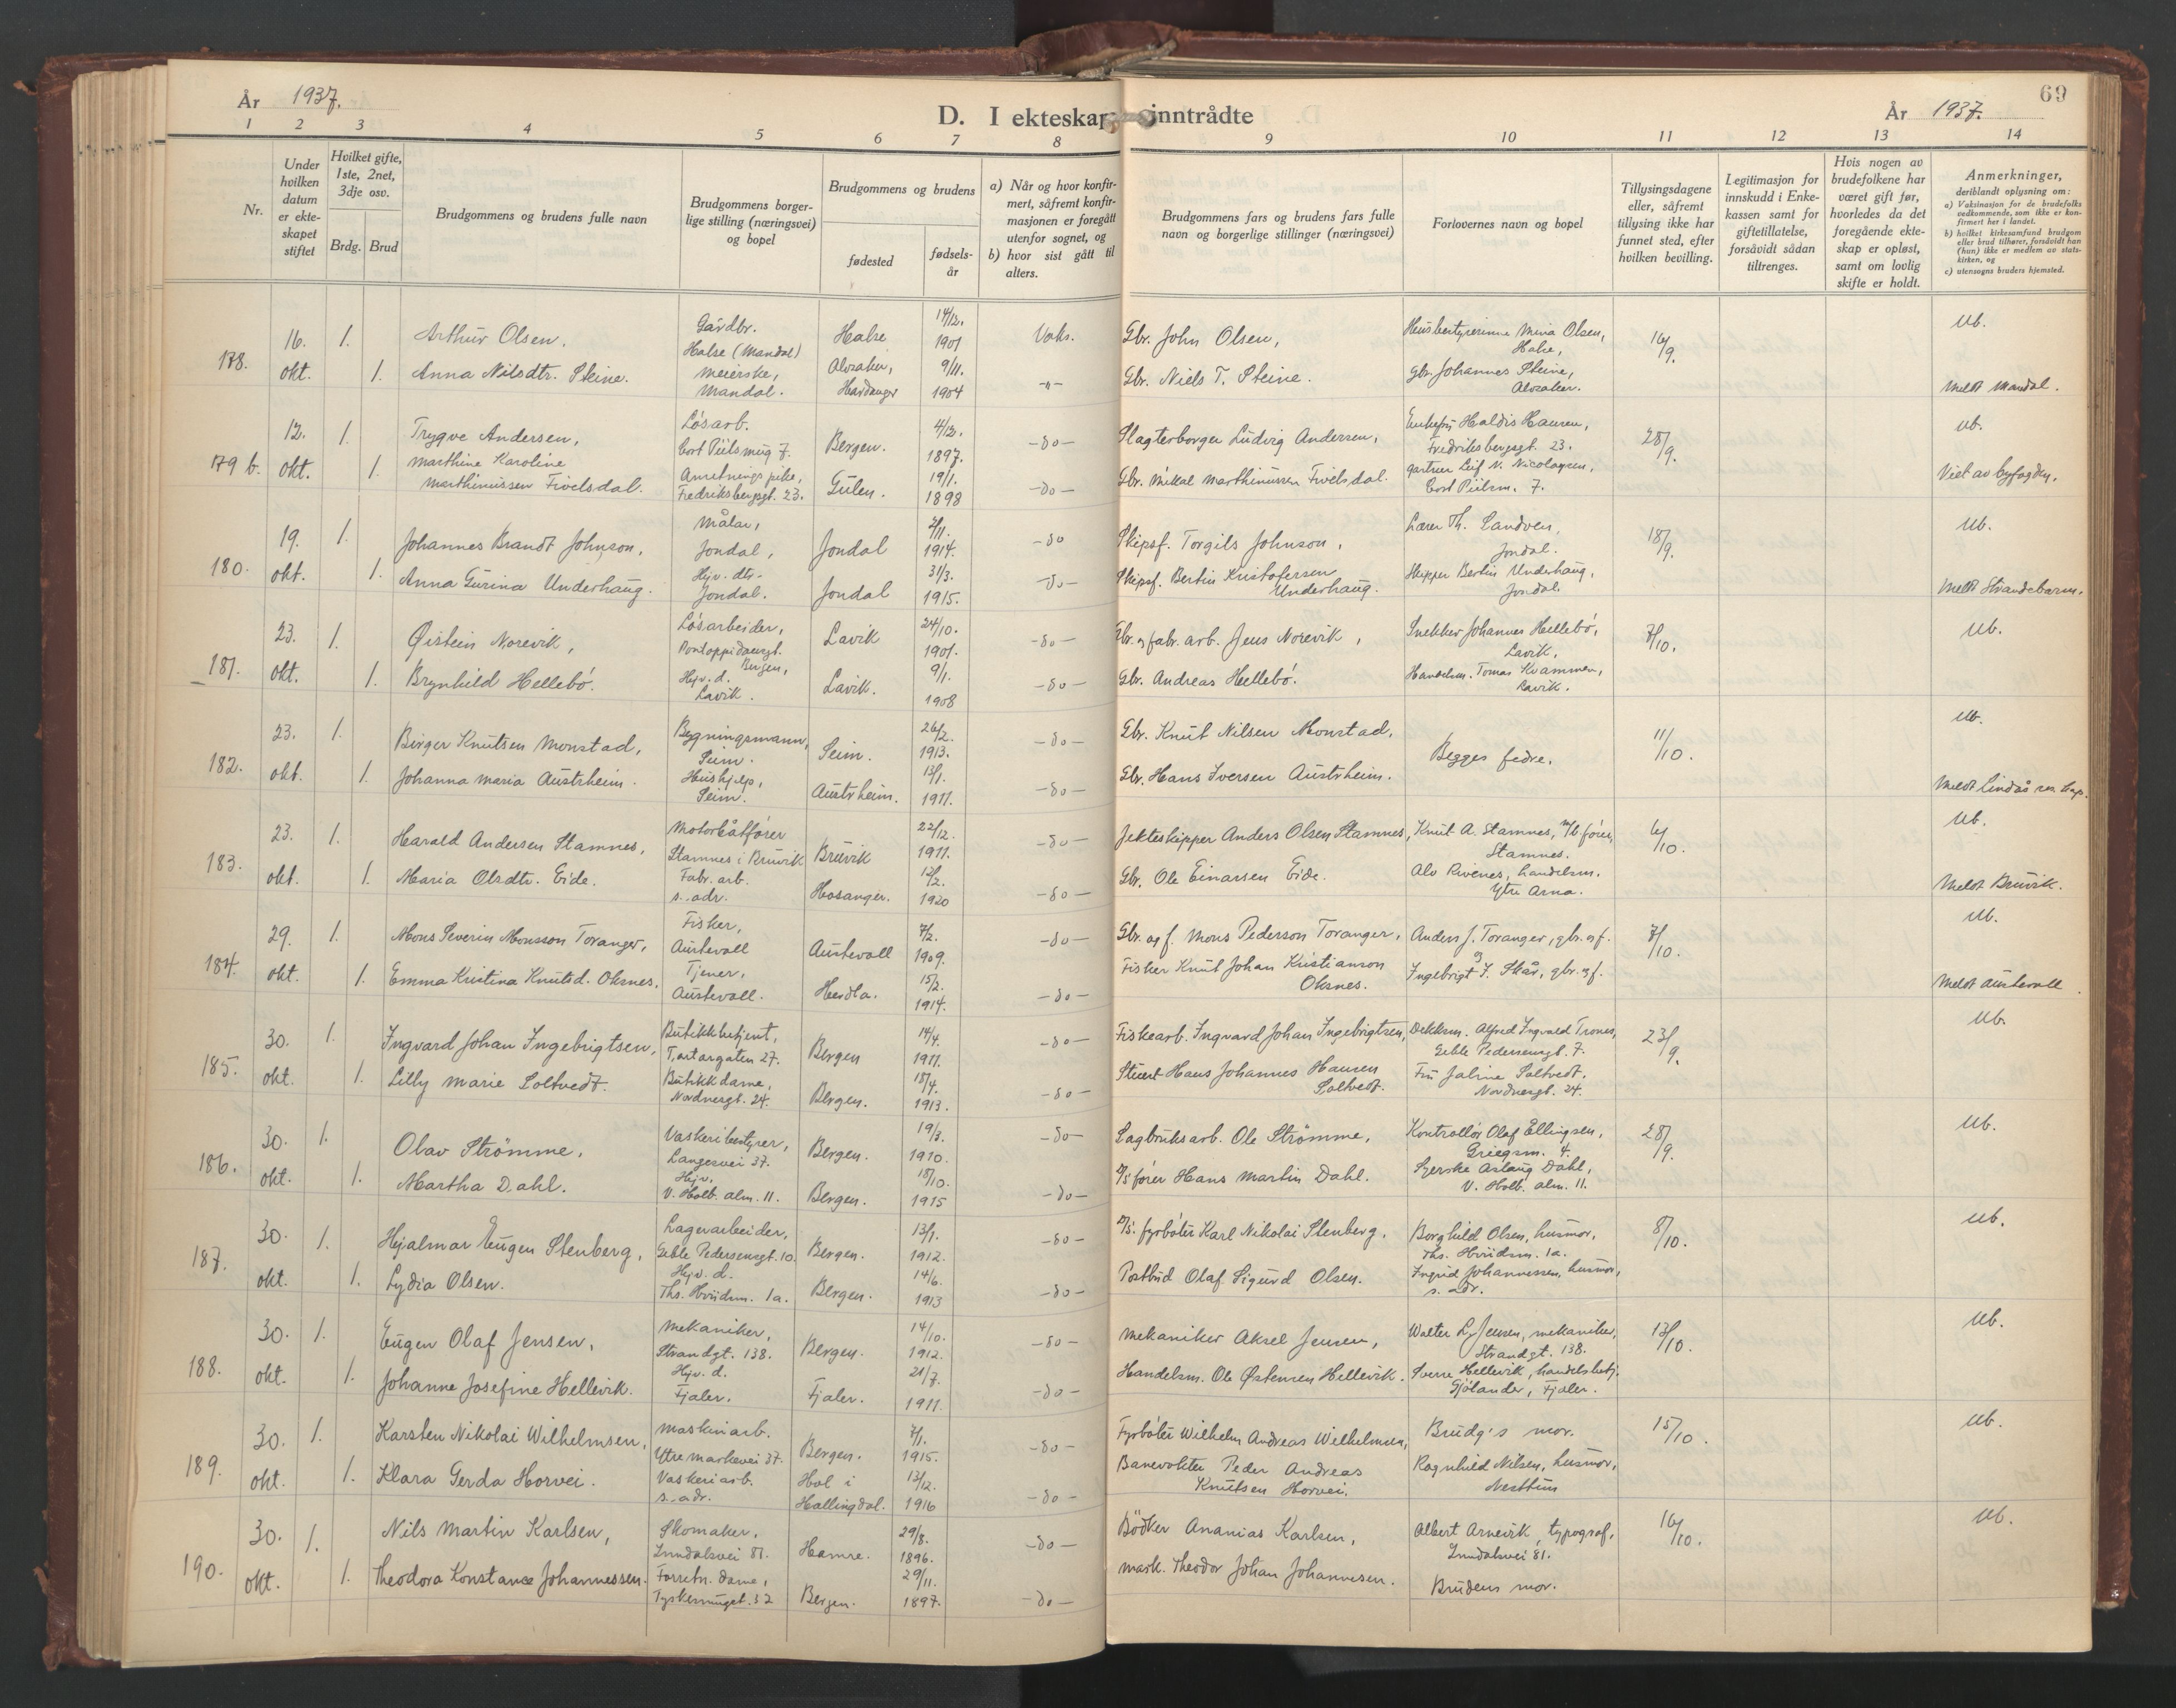 År 1937.
D. I ekteskap inntrådte
År 1937.
69
1 2 3 4 5 6 7 8 9 10 11 12 13 14
Nr.
Under hvilken datum er ekteskapet stiftet
Hvilket gifte, 1ste, 2net, 3dje osv.
Brdg. Brud
Brudgommens og brudens fulle navn
Brudgommens borgerlige stilling (næringsvei) og bopel
Brudgommens og brudens
fødested
fødselsår
a) Når og hvor konfirmert, såfremt konfirmasjonen er foregått utenfor sognet, og
b) hvor sist gått til alters.
Brudgommens fars og brudens fars fulle navn og borgerlige stillinger (næringsvei)
Forlovernes navn og bopel
Tillysingsdagene eller, såfremt tillysing ikke har funnet sted, efter hvilken bevilling.
Legitimasjon for innskudd i Enkekassen samt for giftetillatelse, forsåvidt sådan tiltrenges.
Hvis nogen av brudefolkene har været gift før, hvorledes da det foregående ekteskap er opløst, samt om lovlig skifte er holdt.
Anmerkninger,
deriblandt oplysning om:
a) Vaksinasjon for de brudefolks vedkommende, som ikke er konfirmert her i landet.
b) hvilket kirkesamfund brudgom eller brud tilhører, forsåvidt han (hun) ikke er medlem av statskirken, og
c) utensogns bruders hjemsted.
178. 16. okt. 1. Arthur Olsen. Gårdbr. Halse (Mandal) Halse 14/12. 1901 Vaks. Gbr. John Olsen, Husbestyrerinne Mina Olsen, Halse, 16/9. Ub.
1. Anna Nilsdtr. Steine. Meierske, Mandal. Alvsaker, Hardanger 9/11. 1904 -"- Gbr. Niels T. Steine. Gbr. Johannes Steine, Alvsaker. Meldt Mandal.
179 b. 12. okt. 1. Trygve Andersen, Løsarb. Cort Piilsmug 7. Bergen. 4/12. 1897. -do- Slagterborger Ludvig Andersen, Enkefru Haldis Hansen, Fredriksbergsgt. 23. 28/9. Ub.
1. Marthine Karoline Marthinussen Fivelsdal. Anretningspike, Fredriksbergsgt. 23. Gulen. 19/1. 1898 -do- Gbr. Mikal Marthinussen Fivelsdal. Gartner Leif N. Nicolaysen, Cort Piilsm. 7. Viet av byfogden.
180. 19. okt. 1. Johannes Brandt Johnson, Målar, Jondal, Jondal 2/11. 1914. -do- Skipsf. Torgils Johnson, Lærer Th. Sandven, Jondal. 18/9. Ub.
1. Anna Gurina Underhaug. Hjv. dtr. Jondal. Jondal 31/3. 1915. -do- Skipsf. Bertin Kristofersen Underhaug. Skipper Bertin Underhaug, Jondal. Meldt Strandebarm.
181. 23. okt. 1. Øistein Norevik, Løsarbeider, Pontoppidansgt. Bergen, Lavik 24/10. 1901. -do- Gbr. og fabr. arb. Jens Norevik, Snekker Johannes Hellebø, Lavik, 7/10. Ub.
1. Brynhild Hellebø. Hjv. d. Lavik. Lavik. 9/1. 1908 -do- Gbr. Andreas Hellebø. Handelsm. Tomas Kvammen, Lavik.
182. 23. okt. 1. Birger Knutsen Monstad, Bygningsmann, Seim. Seim. 26/2. 1913. -do- Gbr. Knut Nilsen Monstad, Begges fedre. 11/10. Ub.
1. Johanna Maria Austrheim. Hushjelp, Seim. Austrheim. 13/1. 1911. -do- Gbr. Hans Iversen Austrheim. Meldt Lindås res. kap.
183. 23. okt. 1. Harald Andersen Stamnes, Motorbåtfører Stamnes i Bruvik Bruvik 22/12. 1911. -do- Jekteskipper Anders Olsen Stamnes, Knut A. Stamnes, m/b fører, Stamnes. 6/10. Ub.
1. Maria Olsdtr. Eide. Fabr. arb. s. adr. Hosanger. 12/2. 1920 -do- Gbr. Ole Einarsen Eide. Alv Rivenes, handelsm. Ytre Arna. Meldt Bruvik.
184. 29. okt. 1. Mons Severin Monsson Toranger, Fisker, Austevoll Austevoll 7/2. 1909. -do- Gbr. og f. Mons Pederson Toranger, Anders J. Toranger, gbr. og f. og 7/10. Ub.
1. Emma Kristina Knutsd. Oksnes. Tjener, Austevoll. Herdla. 15/2. 1914. -do- Fisker Knut Johan Kristianson Oksnes. Ingebrigt J. Skår, gbr. og f. Meldt Austevoll.
185. 30. okt. 1. Ingvard Johan Ingebrigtsen, Butikkbetjent, Tartargaten 27. Bergen 14/4. 1911. -do- Fiskearb. Ingvard Johan Ingebrigtsen, Dekksm. Alfred Ingvald Trones, Geble Pedersensgt. 7. 23/9. Ub.
1. Lilly Marie Soltvedt. Butikkdame, Nordnesgt. 24. Bergen. 18/4. 1913. -do- Stuert Hans Johannes Hansen Soltvedt. Fru Jaline Soltvedt, Nordnesgt. 24.
186. 30. okt. 1. Olav Strømme, Vaskeribestyrer, Langesvei 37. Bergen. 19/3. 1910. -do- Sagbruksarb. Ole Strømme, Kontrollør Olaf Ellingsen, Griegsm. 4. 28/9. Ub.
1. Martha Dahl. Hjv. V. Holb. alm. 11. Bergen. 15/10. 1915 -do- D/S fører Hans Martin Dahl. Syerske Aslaug Dahl, V. Holb. alm. 11.
187. 30. okt. 1. Hjalmar Eugen Stenberg, Lagerarbeider, Geble Pedersensgt. 10 Bergen. 13/1. 1912. -do- D/S. fyrbøter Karl Nikolai Stenberg, Borghild Olsen, husmor, Ths. Hviidsm. 1a. 8/10. Ub.
1. Lydia Olsen. Hjv. d. Ths. Hviidsm. 1a. Bergen. 14/6. 1913 -do- Postbud Olaf Sigurd Olsen. Ingrid Johannessen, husmor, s. adr.
188. 30. okt. 1. Eugen Olaf Jensen, Mekaniker, Strandgt. 138. Bergen. 14/10. 1912. -do- Mekaniker Aksel Jensen, Walter L. Jensen, mekaniker, Strandgt. 138. 13/10. Ub.
1. Johanne Josefine Hellevik. Hjv. d. Fjaler. Fjaler. 21/7. 1911. -do- Handelsm. Ole Østensen Hellevik. Sverre Hellevik, handelsbetj. Fjaler.
189. 30. okt. 1. Karsten Nikolai Wilhelmsen, Maskinarb. Ytre Markevei 37. Bergen. 7/1. 1915. -do- Fyrbøter Wilhelm Andreas Wilhelmsen, Brudg's mor. 15/10. Ub.
1. Klara Gerda Horvei. Vaskeriarb. s. adr. Hol i Hallingdal. 13/12. 1916 -do- Banevokter Peder Andreas Knutsen Horvei. Ragnhild Nilsen, husmor, Nesttun
190. 30. okt. 1. Nils Martin Karlsen, Skomaker, Inndalsvei 81. Hamre. 29/8. 1896. -do- Bødker Ananias Karlsen, Albert Arnevik, typograf, Inndalsvei 81. 16/10. Ub.
1. Theodora Konstance Johannessen. Forretn. dame, Bergen. 29/11. 1897. -do- Mask. Theodor Johan Johannesen. Brudens mor.